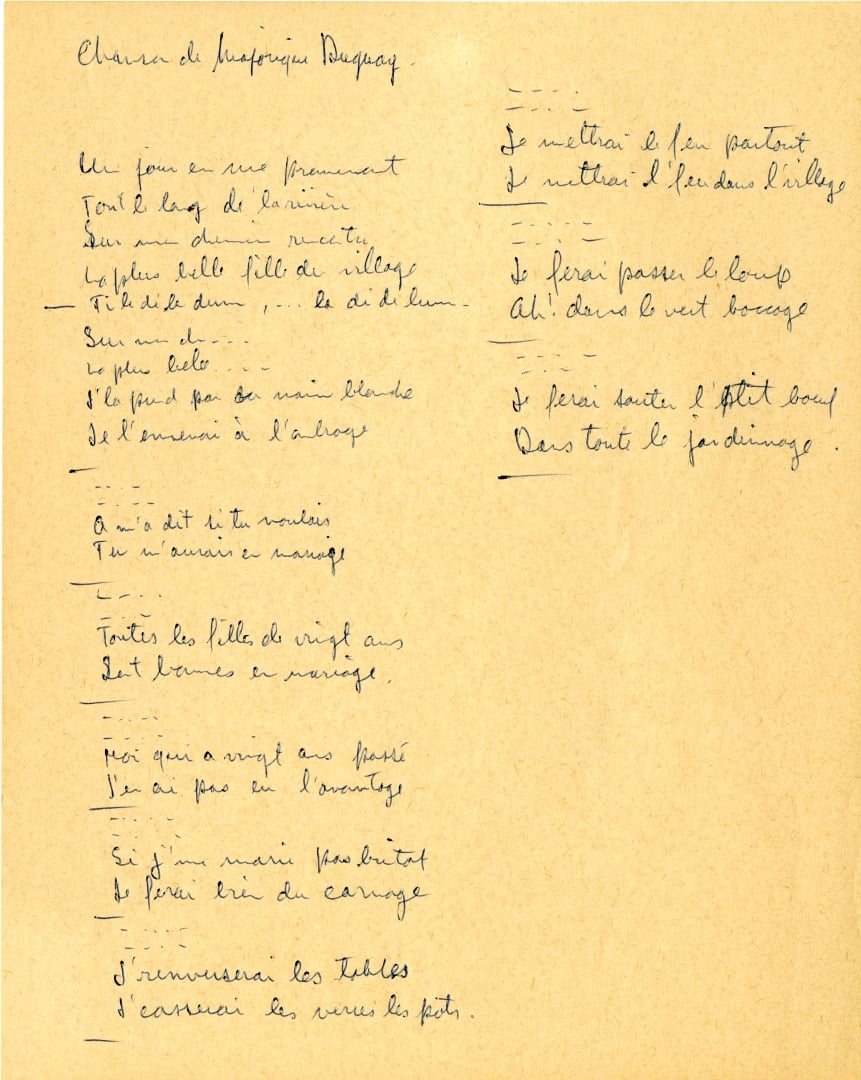 Chanson de Majorique Duguay.
Un jour en me promenant
Tout le long de la rivière
Sur mon chemin rencontr
La plus belle fille du village
Ti le di le dum, ... la di de lum -
Sur mon ch - - -
La plus bele - - - -
J'la prend par sa main blanche
Je l'emmenai à l'ombrage
A m'a dit si tu voulais
Tu m'aurais en mariage
Toutes les filles de vingt ans
Sont bonnes en mariage.
Moi qui a vingt ans passé
J'en ai pas eu l'avantage
Si j'me marie pas bintot
Je ferai bien du carnage
J'renverserai les tables
J'casserai les verres les pots.
Je mettrai le feu partout
Je mettrai l'feu dans l'village
Je ferai passer le loup
Ah! dans le vert boccage
Je ferai sauter l'ptit boeuf
Dans toute le jardinnage.